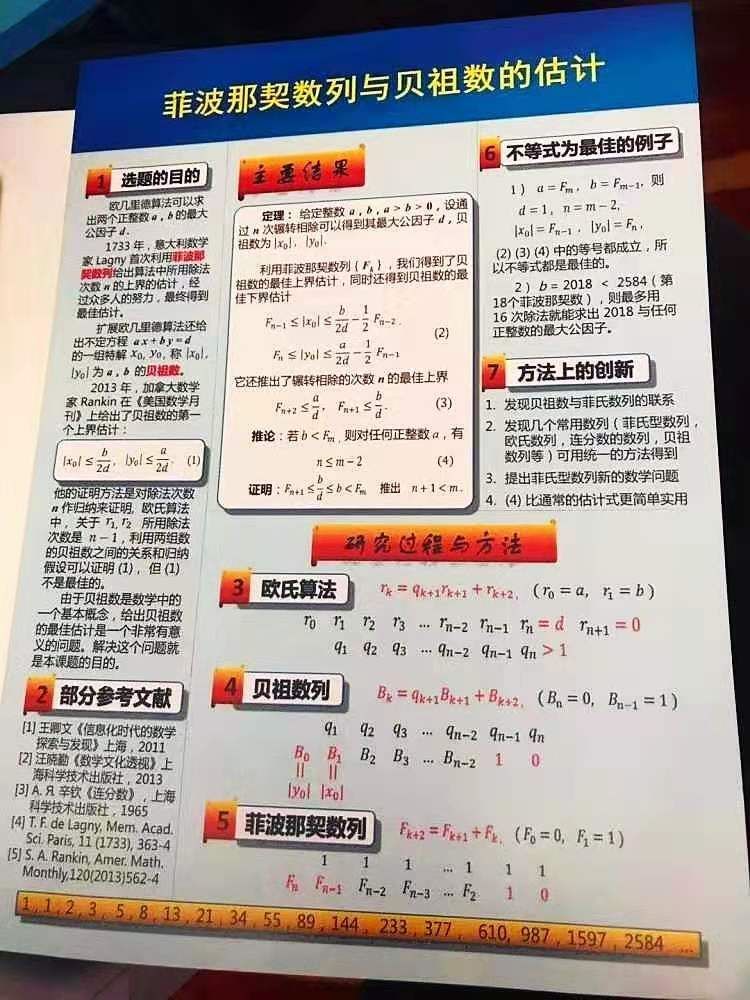 菲波那契数列与贝祖数的估计
1 选题的目的
欧几里德算法可以求
出两个正整数 a , b 的最大
公因子 d .
1733 年，意大利数学
家 Lagny 首次利用菲波那
契数列给出算法中所用除法
次数 n 的上界的估计，经
过众多人的努力，最终得到
最佳估计。
扩展欧几里德算法还给
出不定方程 ax+by=d
的一组特解 x₀, y₀, 称 |x₀| ,
|y₀| 为 a , b 的贝祖数。
2013 年，加拿大数学
家 Rankin 在《美国数学月
刊》上给出了贝祖数的第一
个上界估计：
|x₀| ≤ b/2d , |y₀| ≤ a/2d . (1)
他的证明方法是对除法次数
n 作归纳来证明, 欧氏算法
中，关于 r₁, r₂ 所用除法
次数是 n − 1 , 利用两组数
的贝祖数之间的关系和归纳
假设可以证明 (1) , 但 (1)
不是最佳的。
由于贝祖数是数学中的
一个基本概念，给出贝祖数
的最佳估计是一个非常有意
义的问题。解决这个问题就
是本课题的目的。
2 部分参考文献
[1] 王卿文《信息化时代的数学
探索与发现》上海，2011
[2] 汪晓勤《数学文化透视》上
海科学技术出版社，2013
[3] А. Я. 辛钦《连分数》，上海
科学技术出版社，1965
[4] T. F. de Lagny, Mem. Acad.
Sci. Paris, 11 (1733), 363-4
[5] S. A. Rankin, Amer. Math.
Monthly,120(2013)562-4
主要结果
定理： 给定整数 a , b , a > b > 0 , 设通
过 n 次辗转相除可以得到其最大公因子 d , 贝
祖数为 |x₀| , |y₀| .
利用菲波那契数列 { Fₖ } , 我们得到了贝
祖数的最佳上界估计，同时还得到贝祖数的最
佳下界估计
Fₙ₋₁ ≤ |x₀| ≤ b/2d − 1/2 Fₙ₋₂ .
(2)
Fₙ ≤ |y₀| ≤ a/2d − 1/2 Fₙ₋₁
它还推出了辗转相除的次数 n 的最佳上界
Fₙ₊₂ ≤ a/d , Fₙ₊₁ ≤ b/d . (3)
推论：若 b < Fₘ , 则对任何正整数 a , 有
n ≤ m − 2 (4)
证明：Fₙ₊₁ ≤ b/d ≤ b < Fₘ 推出 n + 1 < m .
6 不等式为最佳的例子
1 ) a = Fₘ , b = Fₘ₋₁, 则
d = 1 , n = m − 2 ,
|x₀| = Fₙ₋₁ , |y₀| = Fₙ ,
(2) (3) (4) 中的等号都成立，所
以不等式都是最佳的。
2 ) b = 2018 < 2584 ( 第
18个菲波那契数 ) , 则最多用
16 次除法就能求出 2018 与任何
正整数的最大公因子。
7 方法上的创新
1. 发现贝祖数与菲氏数列的联系
2. 发现几个常用数列 ( 菲氏型数列 ,
欧氏数列，连分数的数列，贝祖
数列等 ) 可用统一的方法得到
3. 提出菲氏型数列新的数学问题
4. (4) 比通常的估计式更简单实用
研究过程与方法
3 欧氏算法 rₖ = qₖ₊₁rₖ₊₁ + rₖ₊₂ , ( r₀ = a , r₁ = b )
r₀ r₁ r₂ r₃ … rₙ₋₂ rₙ₋₁ rₙ = d rₙ₊₁ = 0
q₁ q₂ q₃ … qₙ₋₂ qₙ₋₁ qₙ > 1
4 贝祖数列 Bₖ = qₖ₊₁Bₖ₊₁ + Bₖ₊₂ , ( Bₙ = 0 , Bₙ₋₁ = 1 )
q₁ q₂ q₃ … qₙ₋₂ qₙ₋₁ qₙ
B₀ B₁ B₂ B₃ … Bₙ₋₂ 1 0
|| ||
|y₀| |x₀|
5 菲波那契数列 Fₖ₊₂ = Fₖ₊₁ + Fₖ , ( F₀ = 0 , F₁ = 1 )
1 1 1 … 1 1 1
Fₙ Fₙ₋₁ Fₙ₋₂ Fₙ₋₃ … F₂ 1 0
1 , 1 , 2 , 3 , 5 , 8 , 13 , 21 , 34 , 55 , 89 , 144 , 233 , 377 , 610, 987 , 1597 , 2584 …